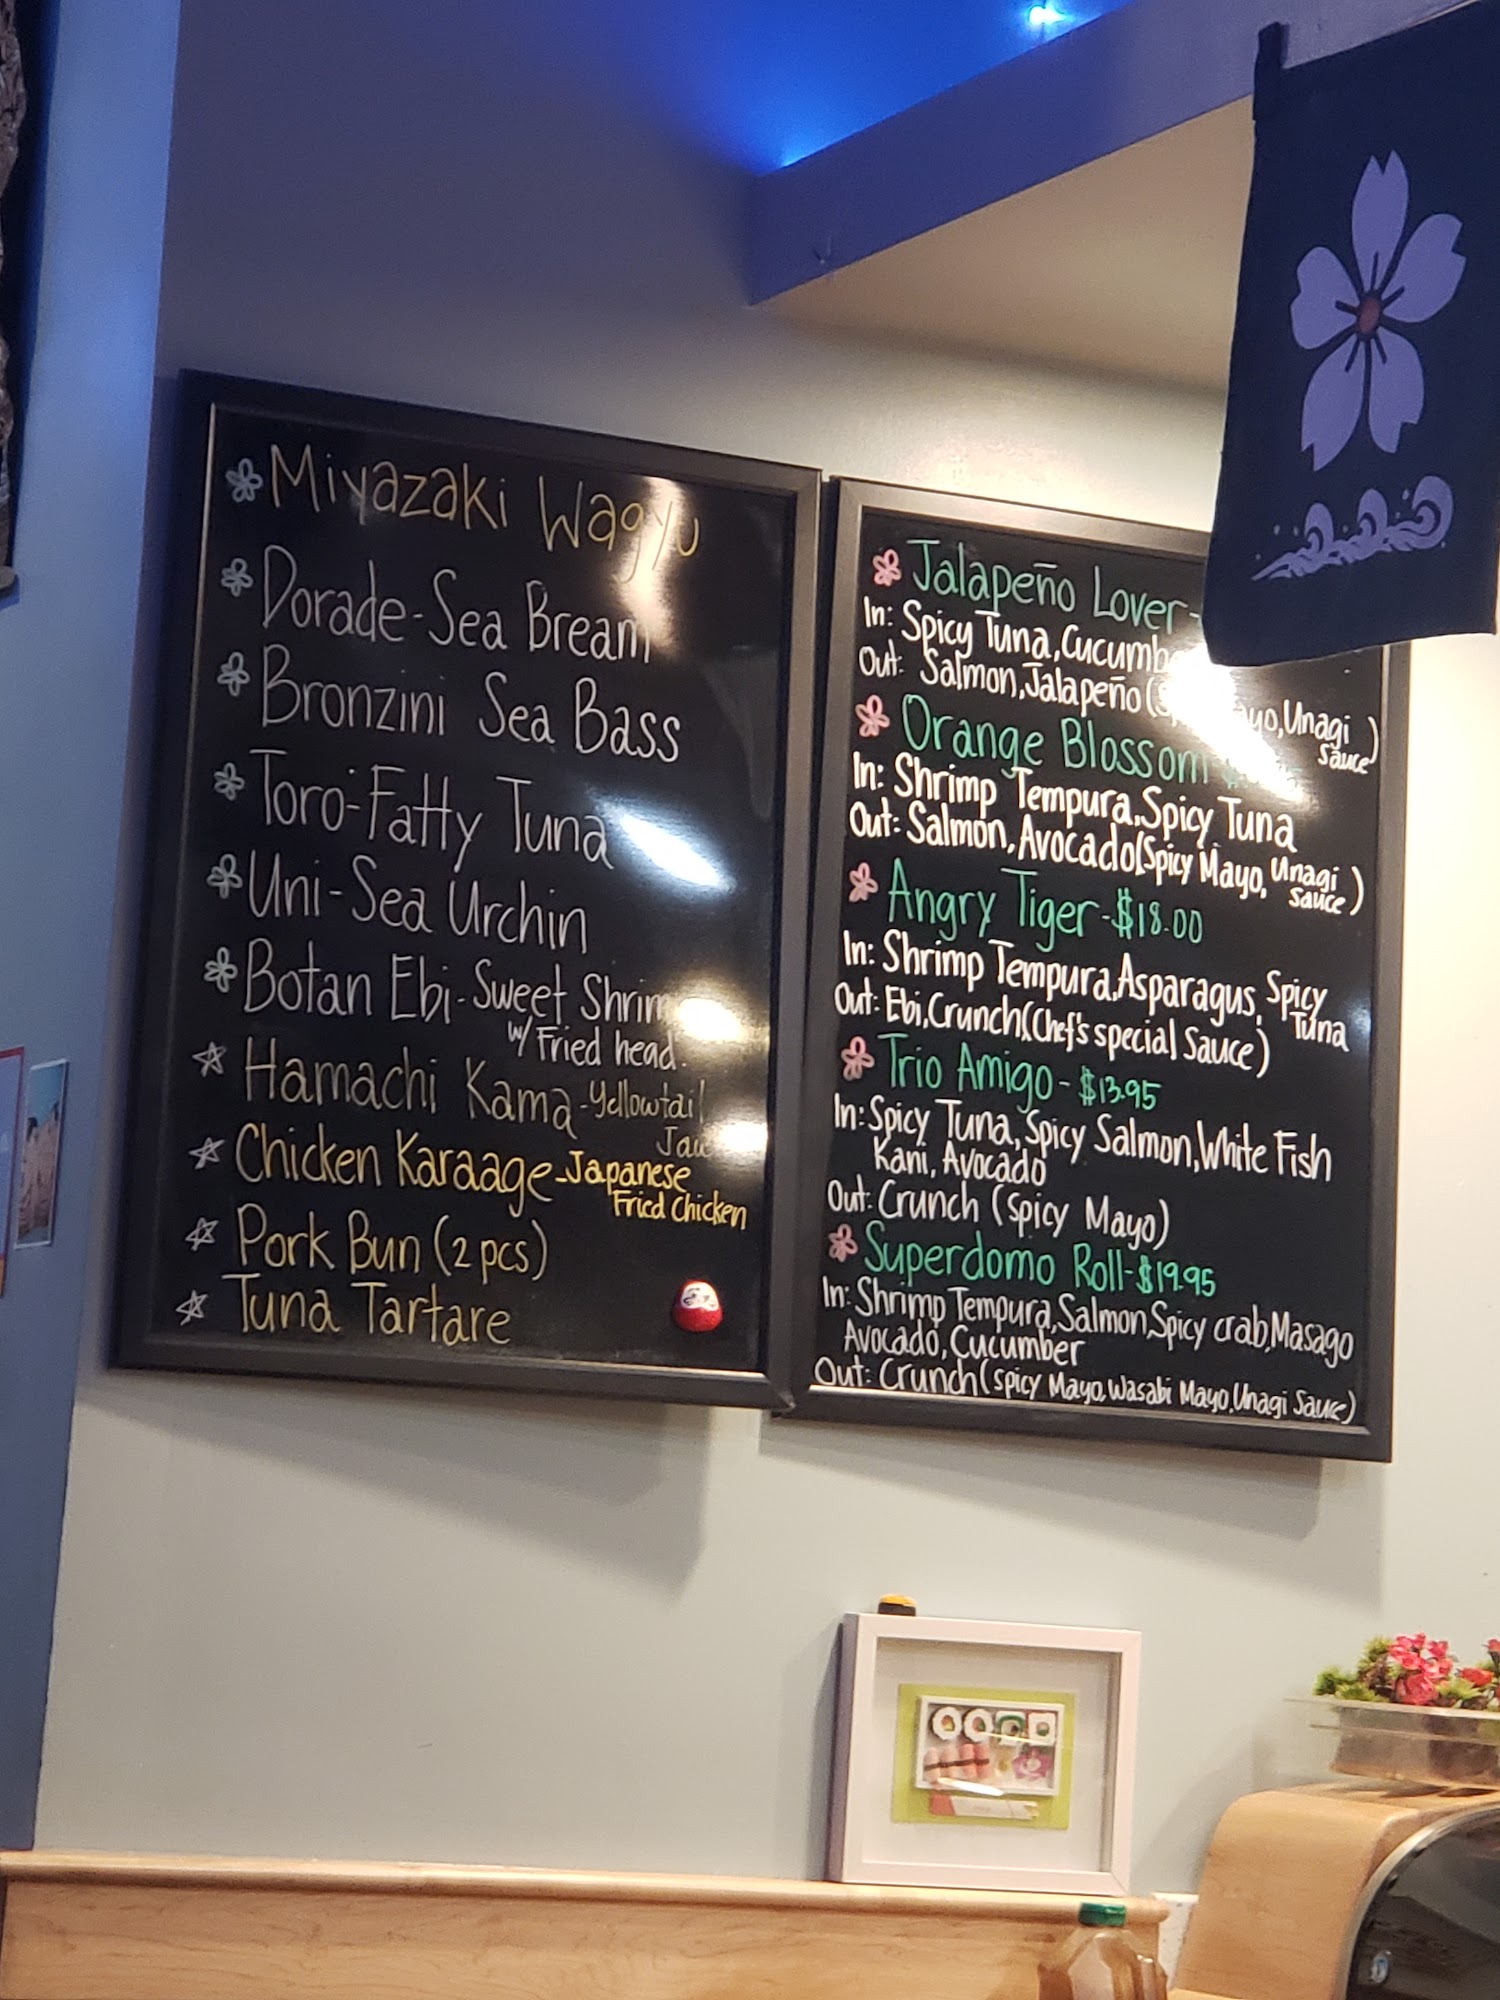 Miyazaki Wagyu
Dorade-Sea Bream
Bronzini Sea Bass
Toro-Fatty Tuna
Uni-Sea Urchin
Botan Ebi-Sweet
w/ Fried head.
Hamachi Kama-Yellowtail
Chicken Karaage-Japanese
Fried Chicken
Pork Bun (2 pcs)
Tuna Tartare
Jalapeño Lover-
In: Spicy Tuna,
Out: Salmon, Jalapeño ( Unagi
Sauce)
Orange Blossom
In: Shrimp Tempura, Spicy Tuna
Out: Salmon, Avocado (Spicy Mayo, Unagi
Sauce)
Angry Tiger-$18.00
In: Shrimp Tempura, Asparagus, Spicy
Tuna
Out: Ebi, Crunch, (Chef's special Sauce)
Trio Amigo-$13.95
In: Spicy Tuna, Spicy Salmon, White Fish
Kani, Avocado
Out: Crunch (Spicy Mayo)
Superdomo Roll-$19.95
In: Shrimp Tempura, Salmon, Spicy crab, Masago
Avocado, Cucumber
Out: Crunch (Spicy Mayo, Wasabi Mayo, Unagi Sauce)